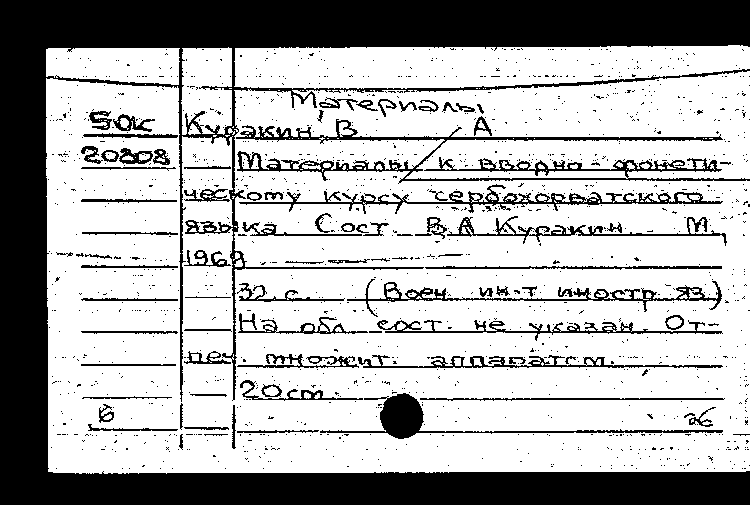 Материалы
50к Куракин, В А
20308 Материалы к вводно-фонети-
ческому курсу сербохорватского
языка. Сост. В.А Куракин. М.,
1969
32 с. (Воен. ин-т иностр яз)
На обл. сост. не указан. От-
печ. множит. аппаратом.
20 cm.